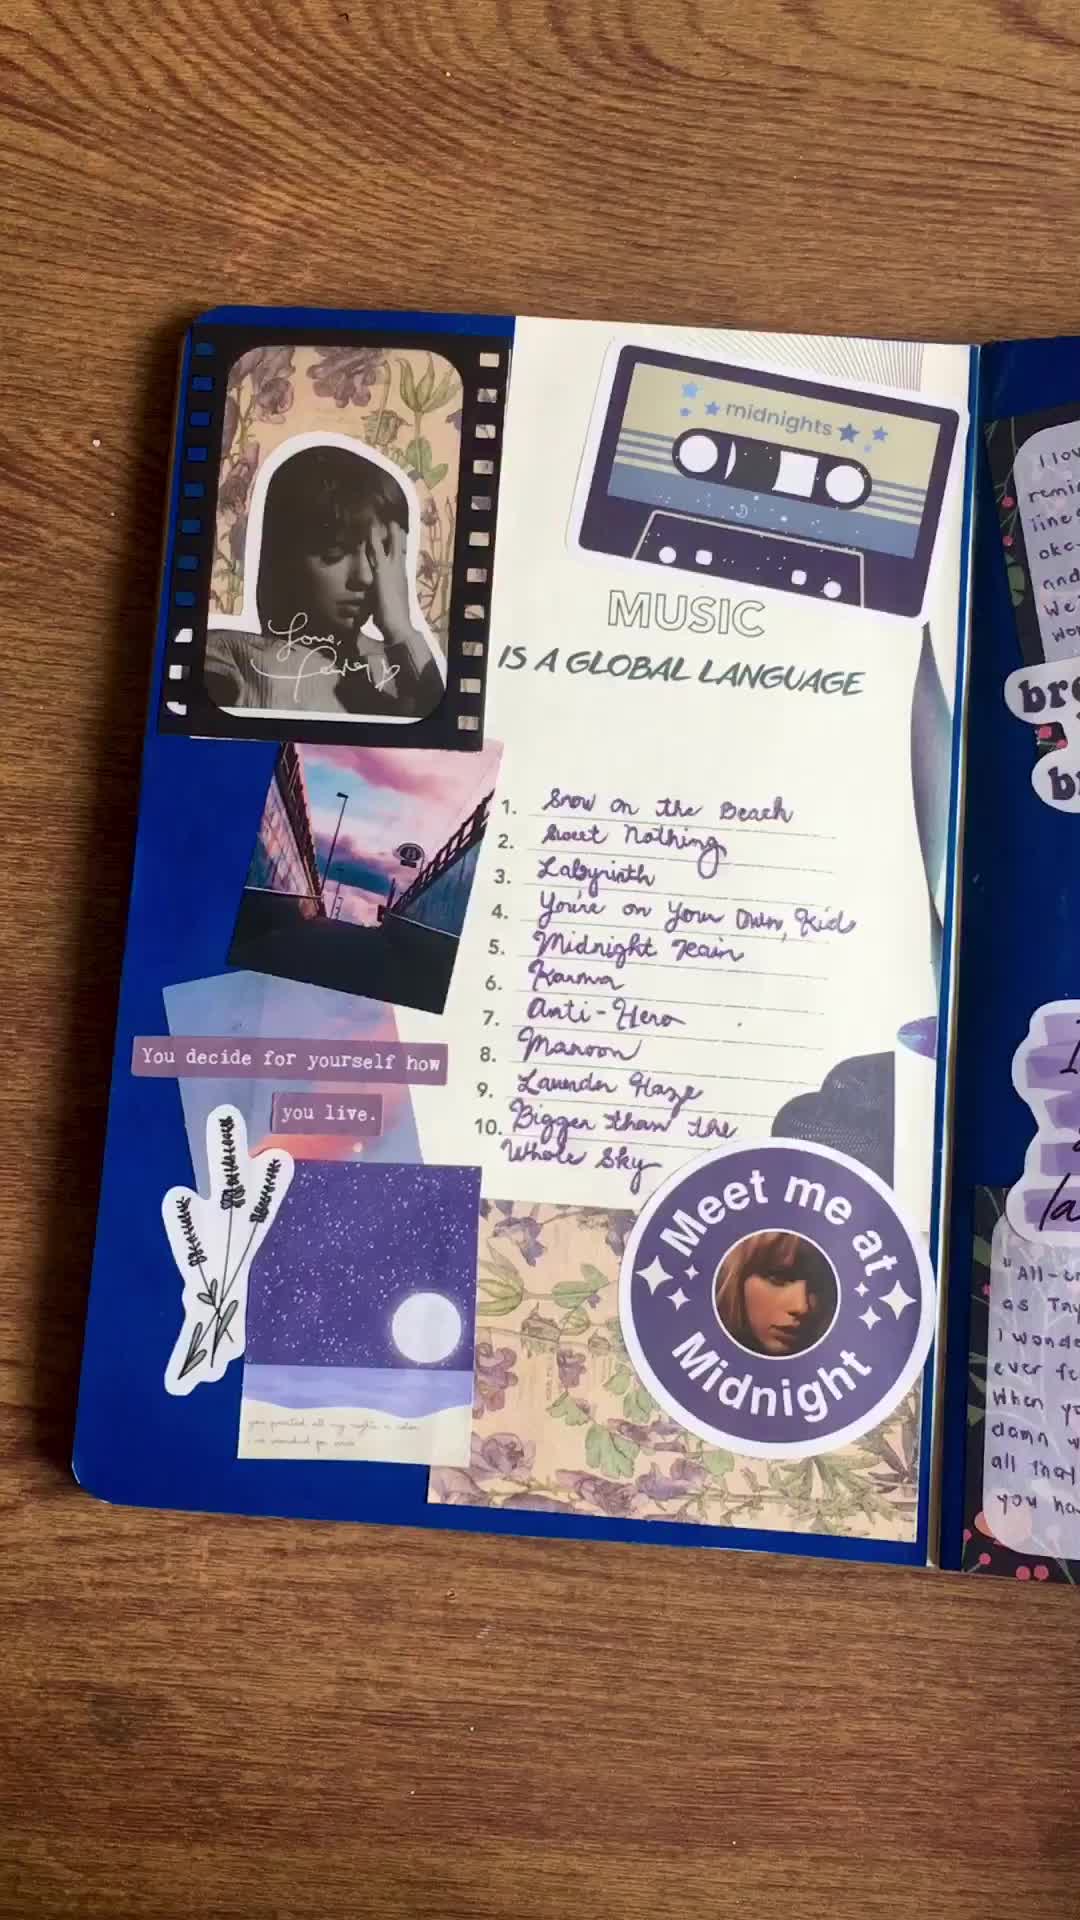 midnights
MUSIC
IS A GLOBAL LANGUAGE
Love,
1. Snow on the Beach
2. Sweet Nothing
3. Labyrinth
4. You're on Your Own, Kid
5. Midnight Rain
6. Karma
7. Anti-Hero
8. Maroon
9. Lavender Haze
10. Bigger than the
Whole Sky
You decide for yourself how
you live.
you painted all my nights a color
Meet me at
Midnight
I lov
remin
line
oke-
and
We'
wor
bre
b
I
la
"All-
as Tay
I wonde
ever fe
When yo
damn w
all that
you ha